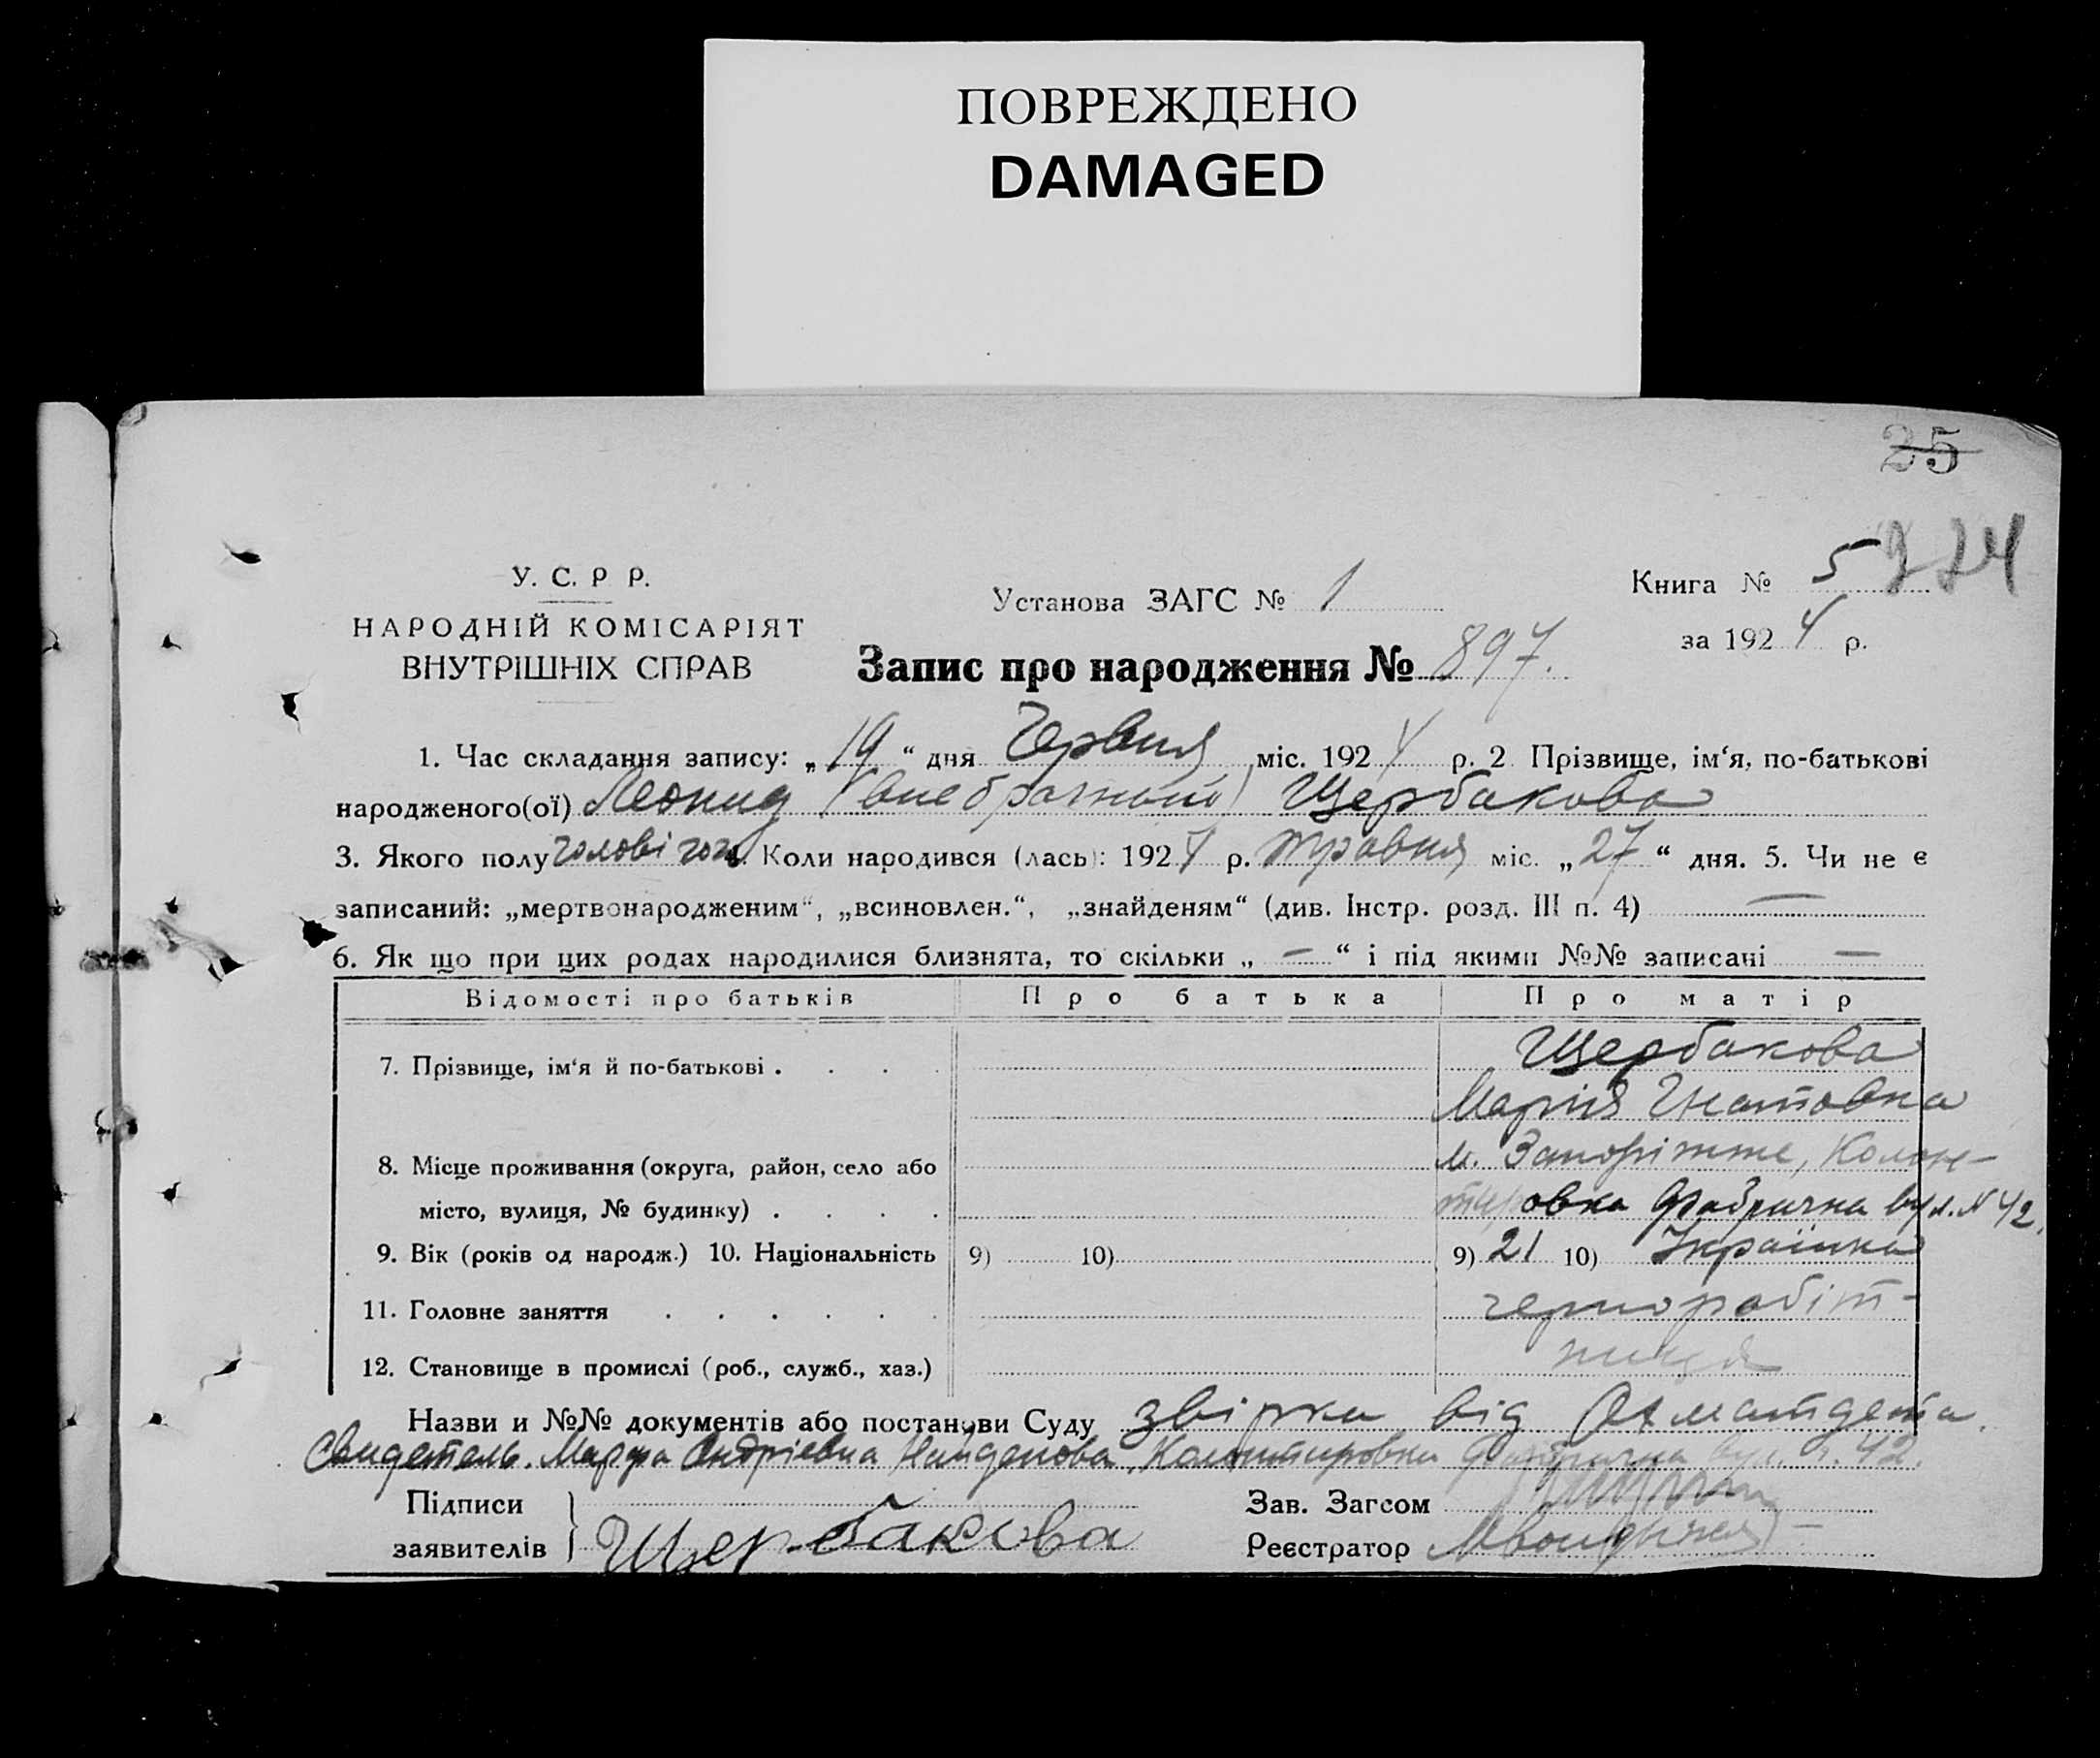 ПОВРЕЖДЕНО
DAMAGED
25
224
У. С. Р Р.
НАРОДНІЙ КОМІСАРІЯТ
ВНУТРІШНІХ СПРАВ
Установа ЗАГС № 1
Книга № 5
за 1924 р.
Запис про народження № 897.
1. Час складання запису: „19“ дня Червня міс. 1924 р. 2 Прізвище, ім‘я, по-батькові
народженого(ої) Леонид (внебрачный) Щербакова
3. Якого полу чоловічого. Коли народився (лась): 1924 р. травня міс. „27“ дня. 5. Чи не є
записаний: „мертвонародженим“, „всиновлен.“, „знайденям“ (див. Інстр. розд. III п. 4) —
6. Як що при цих родах народилися близнята, то скільки „ — “ і під якими №№ записані —
Відомості про батьків Про батька Про матір
7. Прізвище, ім‘я й по-батькові . . . . Щербакова
Мария Игнатовна
8. Місце проживання (округа, район, село або м. Запоріжже,
місто, вулиця, № будинку) . . . . Фабрична вул. № 42.
9. Вік (років од народж.) 10. Національність 9) 10) 9) 21 10) Українка
11. Головне заняття . . . . . . чернорабіт-
12. Становище в промислі (роб., служб., хаз.) ниця
Назви и №№ документів або постанови Суду звірка від Охматдета.
Свидетель. Марфа Андріевна Найденова, Фабрична вул. 42.
Підписи
заявителів Щербакова
Зав. Загсом
Реєстратор